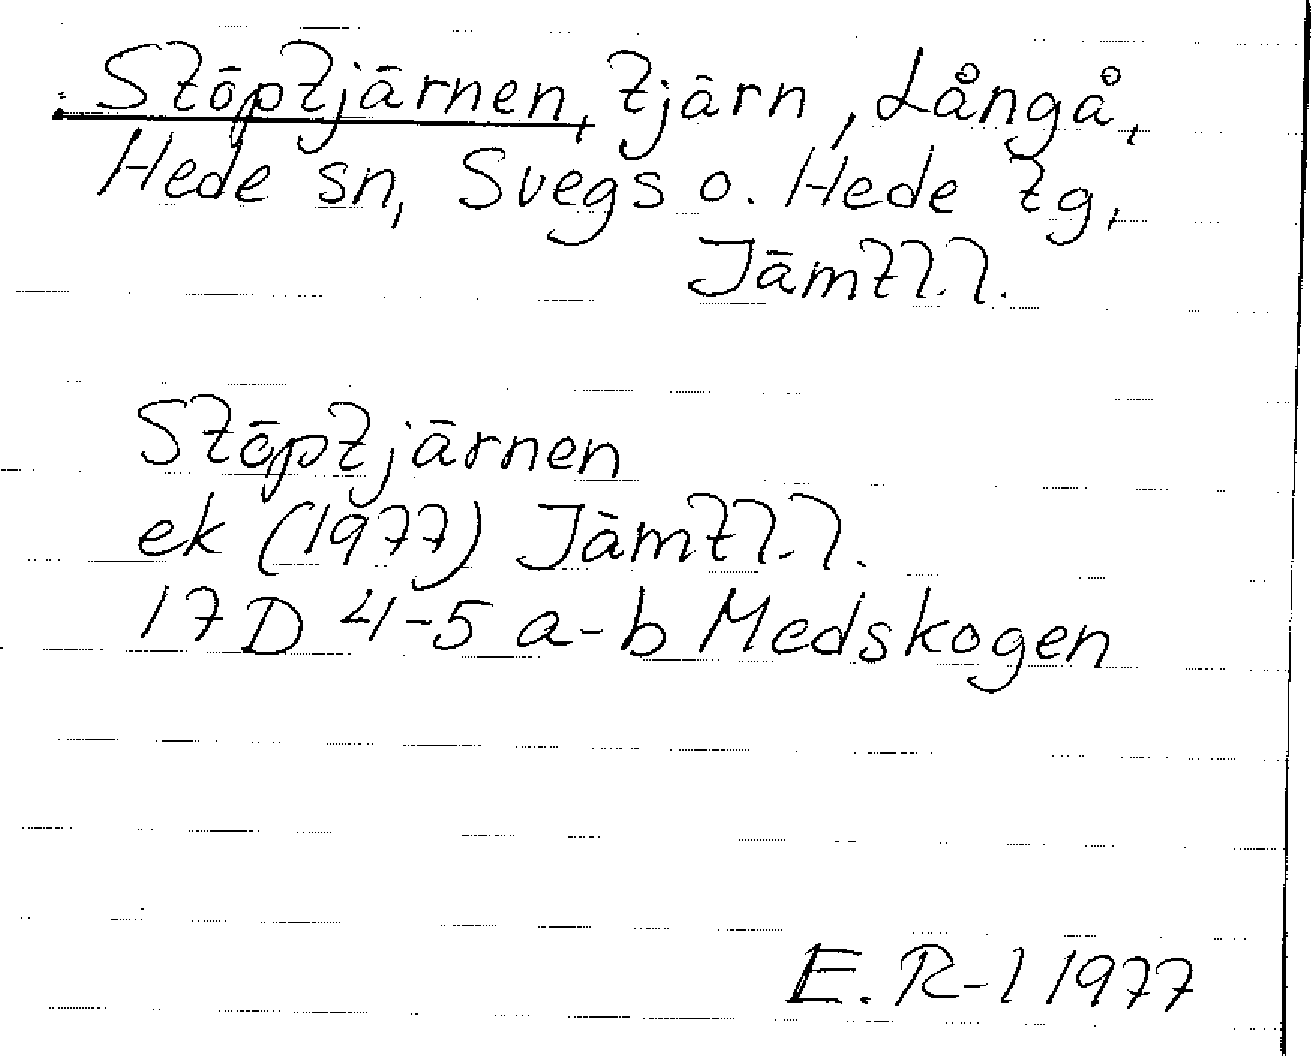 Stöptjärnen, tjärn, Långå,
Hede sn, Svegs o. Hede tg,
Jämtl.l.
Stöptjärnen
ek (1977) Jämtl.l.
17D 4-5 a-b Medskogen
E. R-l 1977